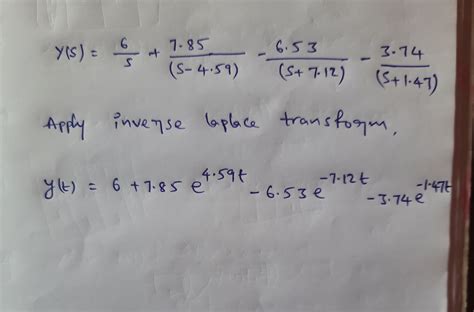 Y(s) = 6/s + 7.85/(s-4.59) - 6.53/(s+7.12) - 3.74/(s+1.47)
Apply inverse laplace transform,
y(t) = 6 + 7.85 e^4.59t - 6.53 e^-7.12t - 3.74 e^-1.47t